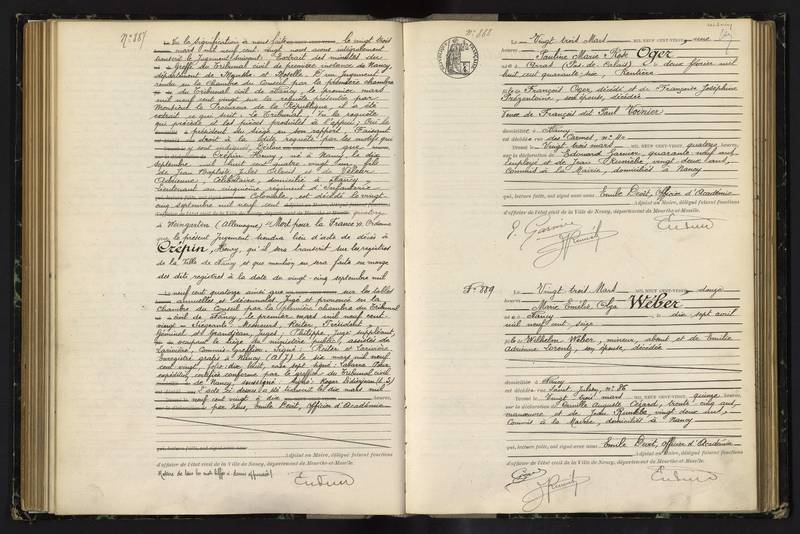 N° 887
Vu la signification à nous faite le vingt trois
mars mil neuf cent vingt nous avons intégralement
transcrit le jugement suivant: Extrait des minutes du
Greffe du Tribunal civil de première instance de Nancy,
département de Meurthe et Moselle. D'un jugement
rendu en la Chambre du Conseil par la première chambre
du Tribunal civil de Nancy, le premier mars
mil neuf cent vingt sur la requête présentée par
Monsieur le Procureur de la République, il a été
extrait ce qui suit: Le Tribunal, Vu la requête
qui précède et les pièces produites à l'appui; Ouï le
président du siège en son rapport; Faisant
droit à la dite requête par les motifs que
y sont indiqués, Déclare que
Crépin Henry, né à Nancy le dix
septembre mil huit cent quatre vingt un, fils
de Jean Baptiste Jules
Adrienne, célibataire, domicilié à Nancy
lieutenant au onzième régiment d'Infanterie
Coloniale, est décédé le vingt
cinq septembre mil neuf cent
d'officier de l'état civil de la Ville de Nancy, département de Meurthe-et-Moselle. quatorze
à Weingarten (Allemagne) "Mort pour la France". Ordonne
que le présent jugement tiendra lieu d'acte de décès à
Crépin Henry, qu'il sera transcrit sur les registres
de la Ville de Nancy et que mention en sera faite en marge
des dits registres à la date du vingt-cinq septembre mil
neuf cent quatorze ainsi que sur les tables
annuelles et décennales. Jugé et prononcé en la
Chambre du Conseil par la première chambre du Tribunal
civil de Nancy, le premier mars mil neuf cent
vingt. Siégeant: Messieurs, Reiter Président,
et Grandjean, juges, Philippe, juge suppléant,
occupant le siège du ministère public, assistés de
Larivière, Commis-Greffier. Signé: Reiter et Larivière
Enregistré gratis à Nancy (A.J) le six mars mil neuf
cent vingt, folio dix huit, case sept. Signé: Labarre. Pour
expédition certifiée conforme par le greffier du Tribunal civil
de Nancy, soussigné. Signé: Roger
L'acte ci dessus a été transcrit le dix mars mil
neuf cent vingt à dix heures,
par Nous, Emile Deot, Officier d'Académie
qui, lecture faite, ont signé avec nous
Adjoint au Maire, délégué faisant fonctions
d'officier de l'état civil de la Ville de Nancy, département de Meurthe-et-Moselle.
N° 888
RÉPUBLIQUE FRANÇAISE
Le Vingt trois Mars MIL NEUF CENT VINGT, neuf
heures, Pauline Marie Rose Oger
née à Carvin (Pas de Calais) le deux février mil
huit cent quarante six, Rentière
fille de François Oger décédé et de Françoise Joséphine
son épouse, décédée
Veuve de François dit Paul Voinier
domiciliée à Nancy
est décédée rue des Carmes, n° 40
Dressé le Vingt trois mars MIL NEUF CENT VINGT, quatorze heures,
sur la déclaration de Edouard Garnier, quarante neuf ans
employé et de Jean Remiatte vingt deux ans,
Commis à la Mairie, domiciliés à Nancy
qui, lecture faite, ont signé avec nous Emile Deot, Officier d'Académie
Adjoint au Maire, délégué faisant fonctions
d'officier de l'état civil de la Ville de Nancy, département de Meurthe-et-Moselle.
E. Garnier
N° 889
Le Vingt trois Mars MIL NEUF CENT VINGT, douze
heures, Marie Emilie Olga Wéber
née à Nancy le dix sept avril
mil neuf cent seize
fille de Wilhelm Wéber, mineur, absent et de Emilie
Adrienne Lorentz, son épouse, décédée
domiciliée à Nancy
est décédée rue Saint Julien, n° 36
Dressé le Vingt trois mars MIL NEUF CENT VINGT, quinze heures,
sur la déclaration de Camille Auguste Cézard, trente cinq ans
manœuvre et de Jean Remiatte, vingt deux ans,
Commis à la Mairie, domiciliés à Nancy
qui, lecture faite, ont signé avec nous Emile Deot, Officier d'Académie
Adjoint au Maire, délégué faisant fonctions
d'officier de l'état civil de la Ville de Nancy, département de Meurthe-et-Moselle.